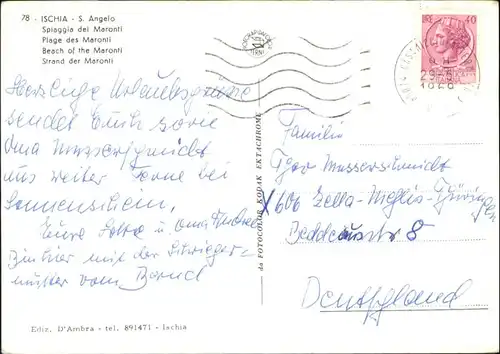 78 - ISCHIA - S. Angelo
Spiaggia dei Maronti
Plage des Maronti
Beach of the Maronti
Strand der Maronti
Herzliche Urlaubsgrüsse
sendet Euch sowie
Oma Messerschmidt
aus weiter Ferne bei
Sonnenschein,
Eure Lotte u. Oma
mit der Schwieger=
mutter vom Bernd
Ediz. D'Ambra - tel. 891471 - Ischia
da FOTOCOLOR KODAK EKTACHROME
40
1969
Familie
Messerschmidt
X 606 Zella-Mehlis-Thüringen
8
Deutschland